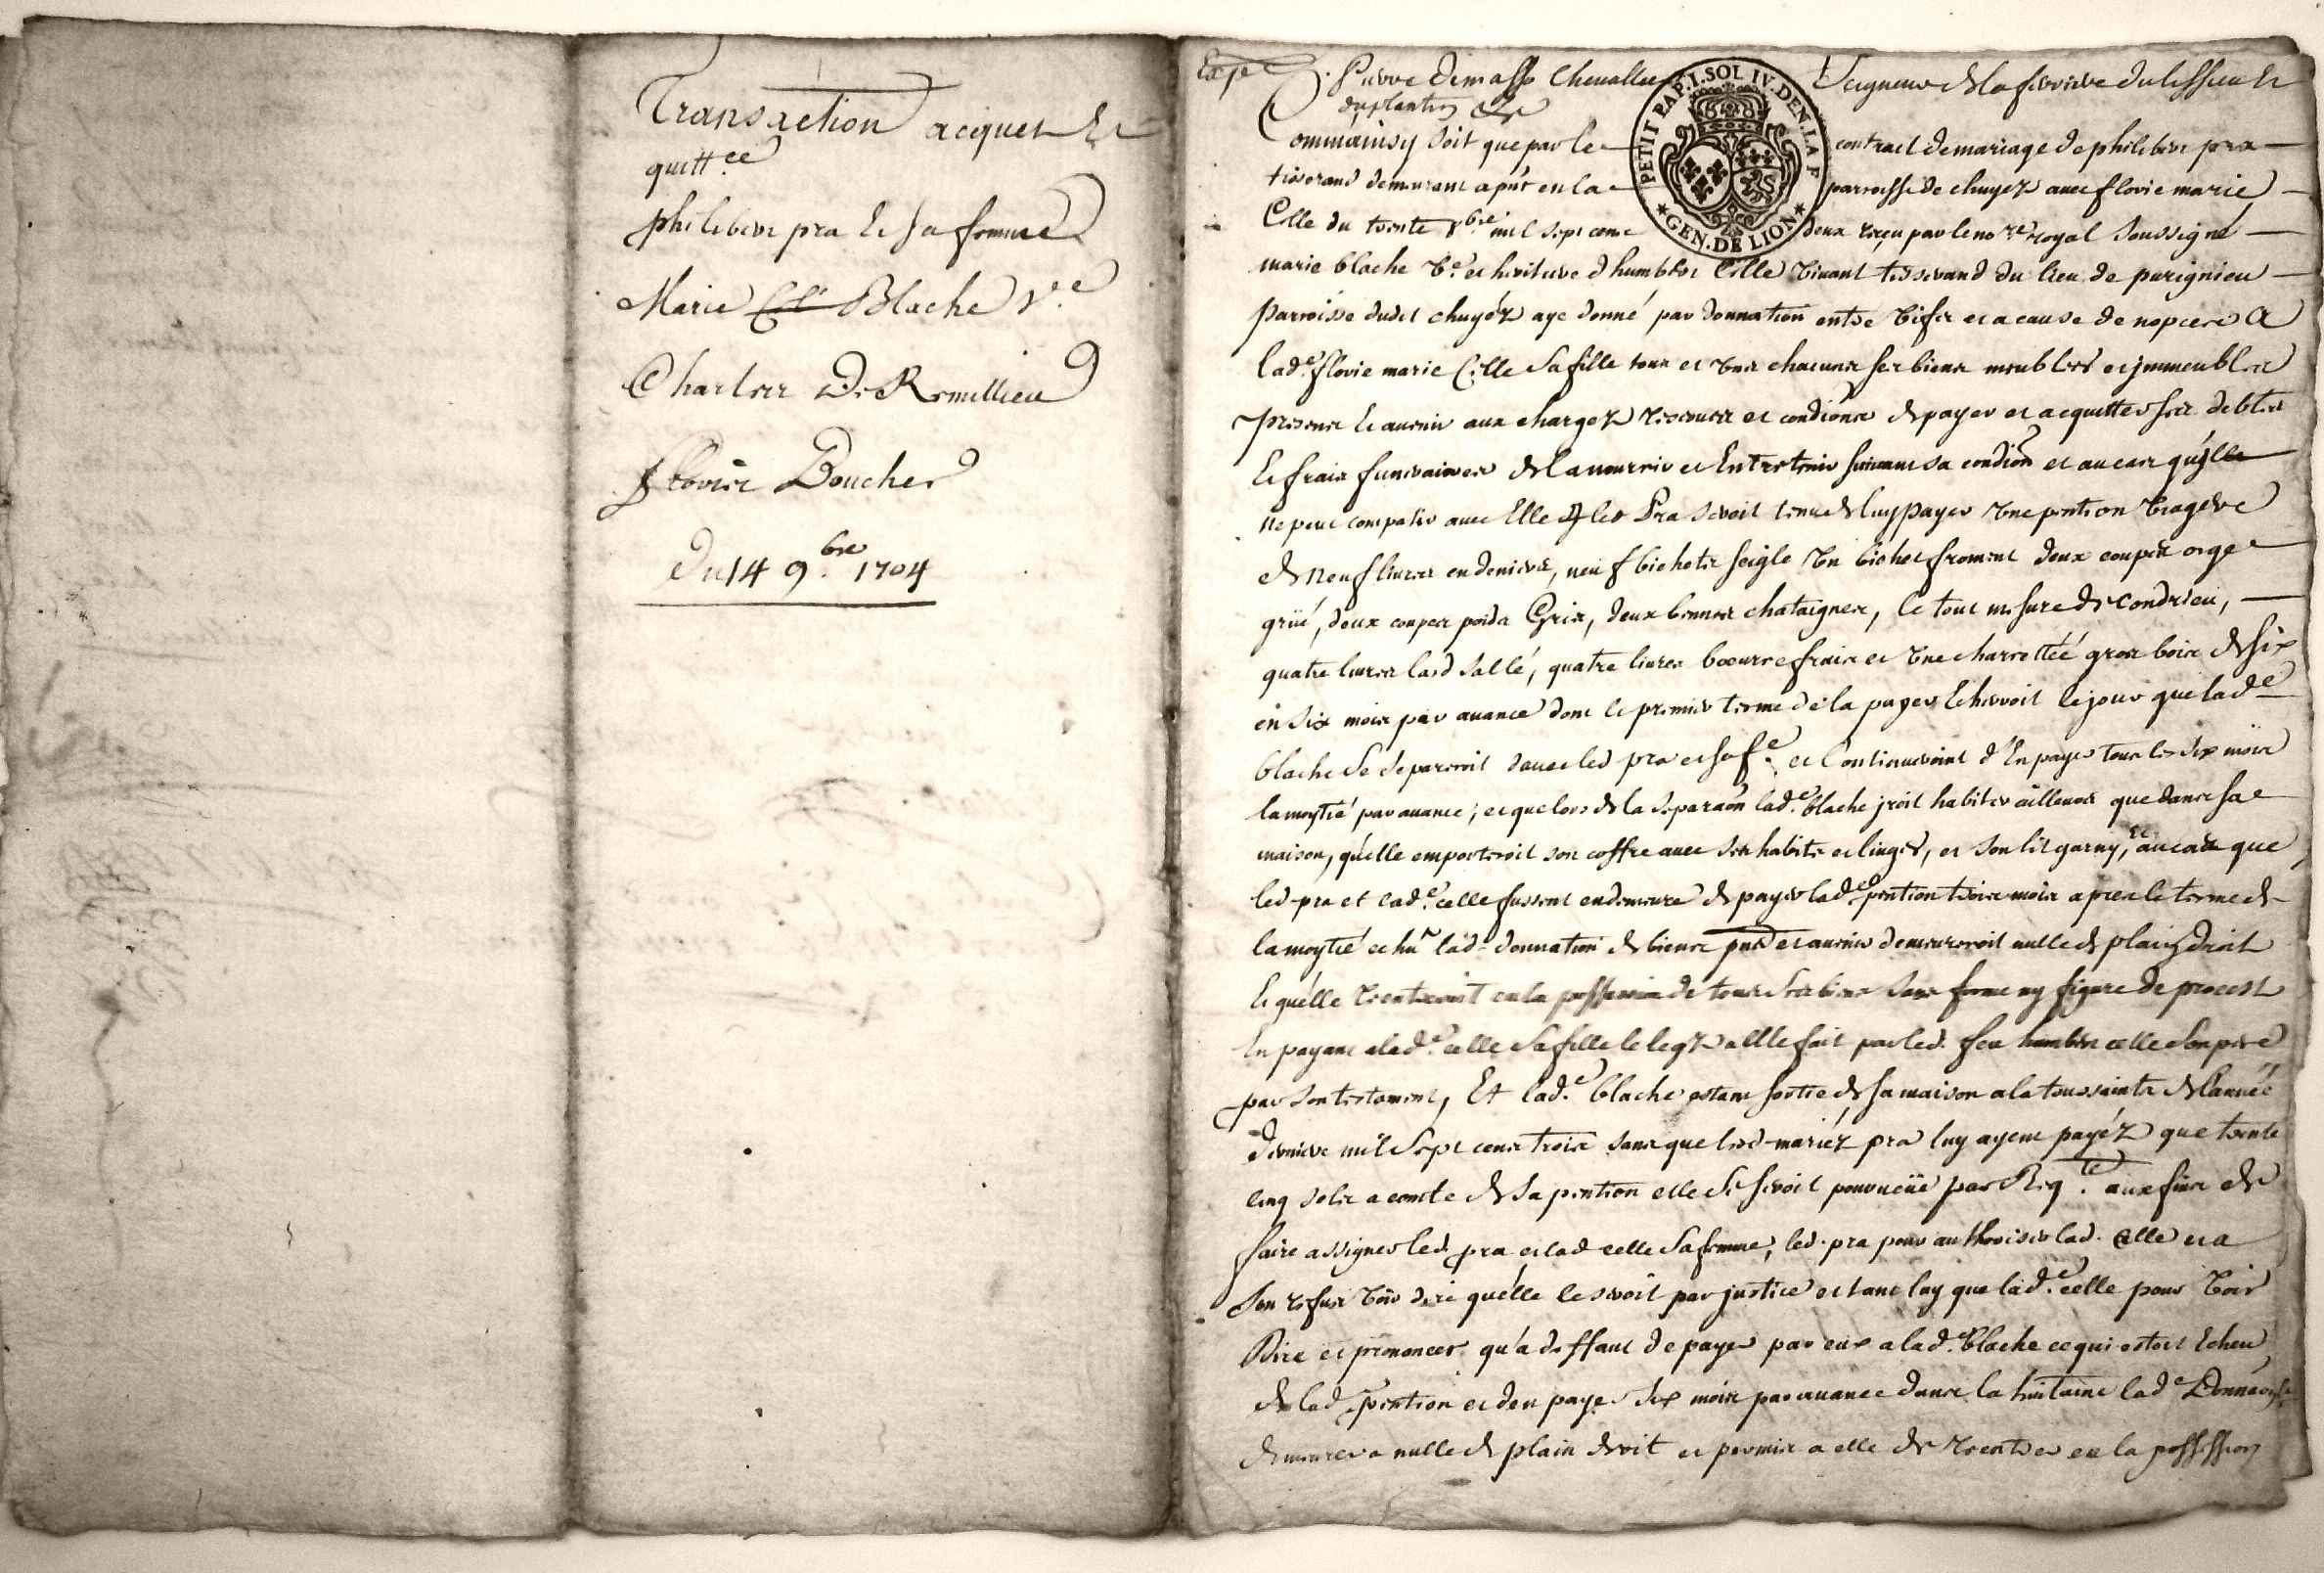 Transaction acquet Et
quitt.ce
philibert pra Et sa femme
Marie Blache V.e
Charles De Romillieu
Boucher
Du 14 9.bre 1704
Pierre Chevallier Seigneur
duplantier
PETIT PAP. I. SOL IV. DEN. LA F
GEN. DE LION
Comme ainsy soit que par le contract de mariage de philibert pra
tisserand demeurant en la parroisse de chuyez avec flovie marie
Celle du trente 8.bre mil sept cent deux reçeu par le no.re royal soussigné
marie blache V.e et heritiere d humbert Celle vivant tisserand du lieu de purignieu
parroisse dudit chuyéz aye donné par donnation entre vifs et a cause de nopces A
lad.e flovie marie Celle sa fille tous et uns chacuns ses biens meubles et jmmeubles
presents Et avenir aux chargez et condions de payer et acquitter ses debtes
Et frais funeraires de la nourrir et Entretenir suivant sa condion et au cas qu'elle
ne peut compatir avec Elle led Pra seroit tenu de luy payer une pention viagere
de neuf livres en deniers, neuf bichets seigle un bichet froment deux coupes orge
grüé, deux coupes poids Gris, deux bennes chataignes, le tout mesure de Condrieu,
quatre livres lard sallé, quatre livres bœurre frais et une charrettéé gros bois de six
en six mois par avance dont le premier terme de la payer Echerroit le jour que lad.e
blache se separeroit davec led pra et sa f.e et Continueroint d'En payer tous les six mois
la moytié par avance; et que lors de la separaon lad.e blache jroit habiter ailleurs que dans sa
maison, qu'elle emporteroit son coffre avec ses habits et linges, et son lit garny, Et au cas que
led pra et lad.e celle fussent en demeure de payer lad.e pention trois mois apres le terme de
la moytié echu lad donnation de biens pnts et avenir demeureroit nulle de plain droit
Et qu'elle rentreroit en la possession de tous ses biens sans forme ny figure de procest
En payant a lad.e celle sa fille le legz a Elle fait par led. feu humbert celle son pere
par son testament, Et lad.e blache estant sortie de sa maison a la toussaints de l'année
derniere mil sept cents trois sans que lesd mariéz pra luy ayent payéz que trente
cinq sols a comte de sa pention elle se seroit pourveüe par Req.te aux fins de
faire assigner led. pra et lad celle sa femme, led. pra pour authoriser lad. celle et a
son refus voir dire qu'elle le seroit par justice et tant luy que lad.e celle pour voir
Dire et prononcer qu'a deffaut de payer par eux a lad.e blache ce qui estoit Echeu
de lad pention et den payer six mois par avance dans la huitaine lad.e Donnaon
demeurera nulle de plain droit et permis a elle de rentrer en la possession